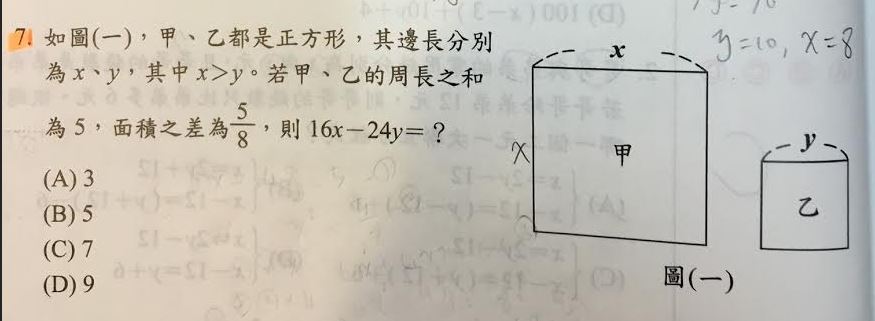 7. 如圖(一)，甲、乙都是正方形，其邊長分別
為 x、y，其中 x>y。若甲、乙的周長之和
為 5，面積之差為 5/8，則 16x－24y＝？
(A) 3
(B) 5
(C) 7
(D) 9
y=10, x=8
x
x
甲
y
乙
圖(一)